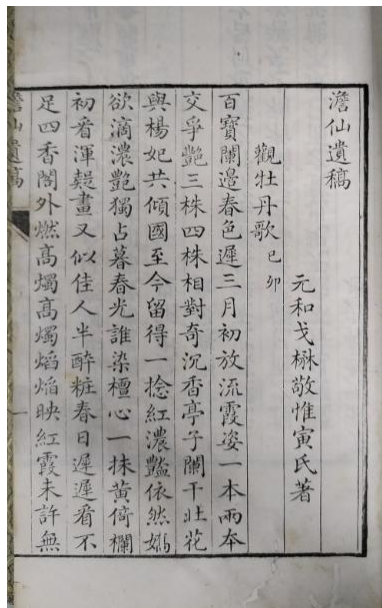 澹仙遺稿
元和戈楙敬惟寅氏著
觀牡丹歌己卯
百寶闌邊春色遲三月初放流霞姿一本兩本
交爭艷三株四株相對奇沉香亭子闌干壯花
與楊妃共傾國至今留得一捻紅濃豔依然嫋
欲滴濃艷獨占暮春光誰染檀心一抹黃倚欄
初看渾疑畫又似佳人半醉粧春日遲遲看不
足四香閣外燃高燭高燭焰焰映紅霞未許無
澹仙遺稿
一